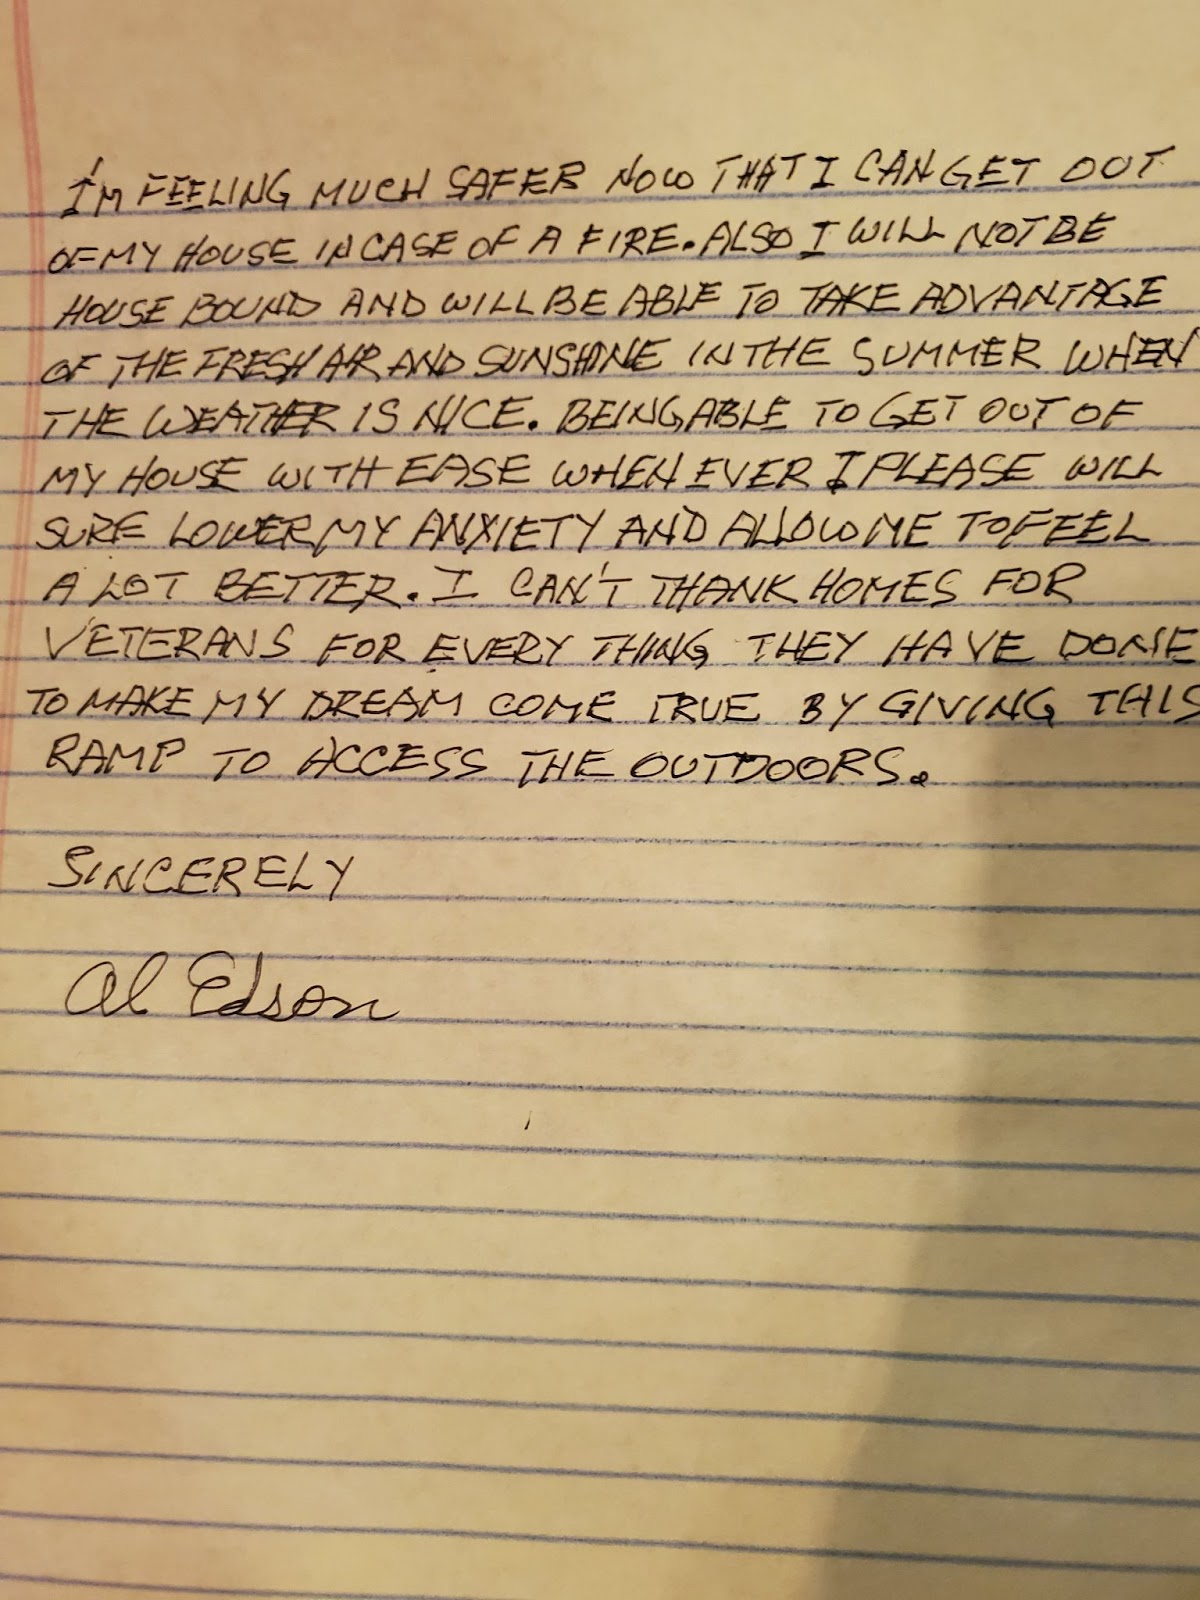 I'M FEELING MUCH SAFER NOW THAT I CAN GET OUT
OF MY HOUSE IN CASE OF A FIRE. ALSO I WILL NOT BE
HOUSE BOUND AND WILL BE ABLE TO TAKE ADVANTAGE
OF THE FRESH AIR AND SUNSHINE IN THE SUMMER WHEN
THE WEATHER IS NICE. BEING ABLE TO GET OUT OF
MY HOUSE WITH EASE WHEN EVER I PLEASE WILL
SURE LOWER MY ANXIETY AND ALLOW ME TO FEEL
A LOT BETTER. I CAN'T THANK HOMES FOR
VETERANS FOR EVERY THING THEY HAVE DONE
TO MAKE MY DREAM COME TRUE BY GIVING THIS
RAMP TO ACCESS THE OUTDOORS.
SINCERELY
Al Edson